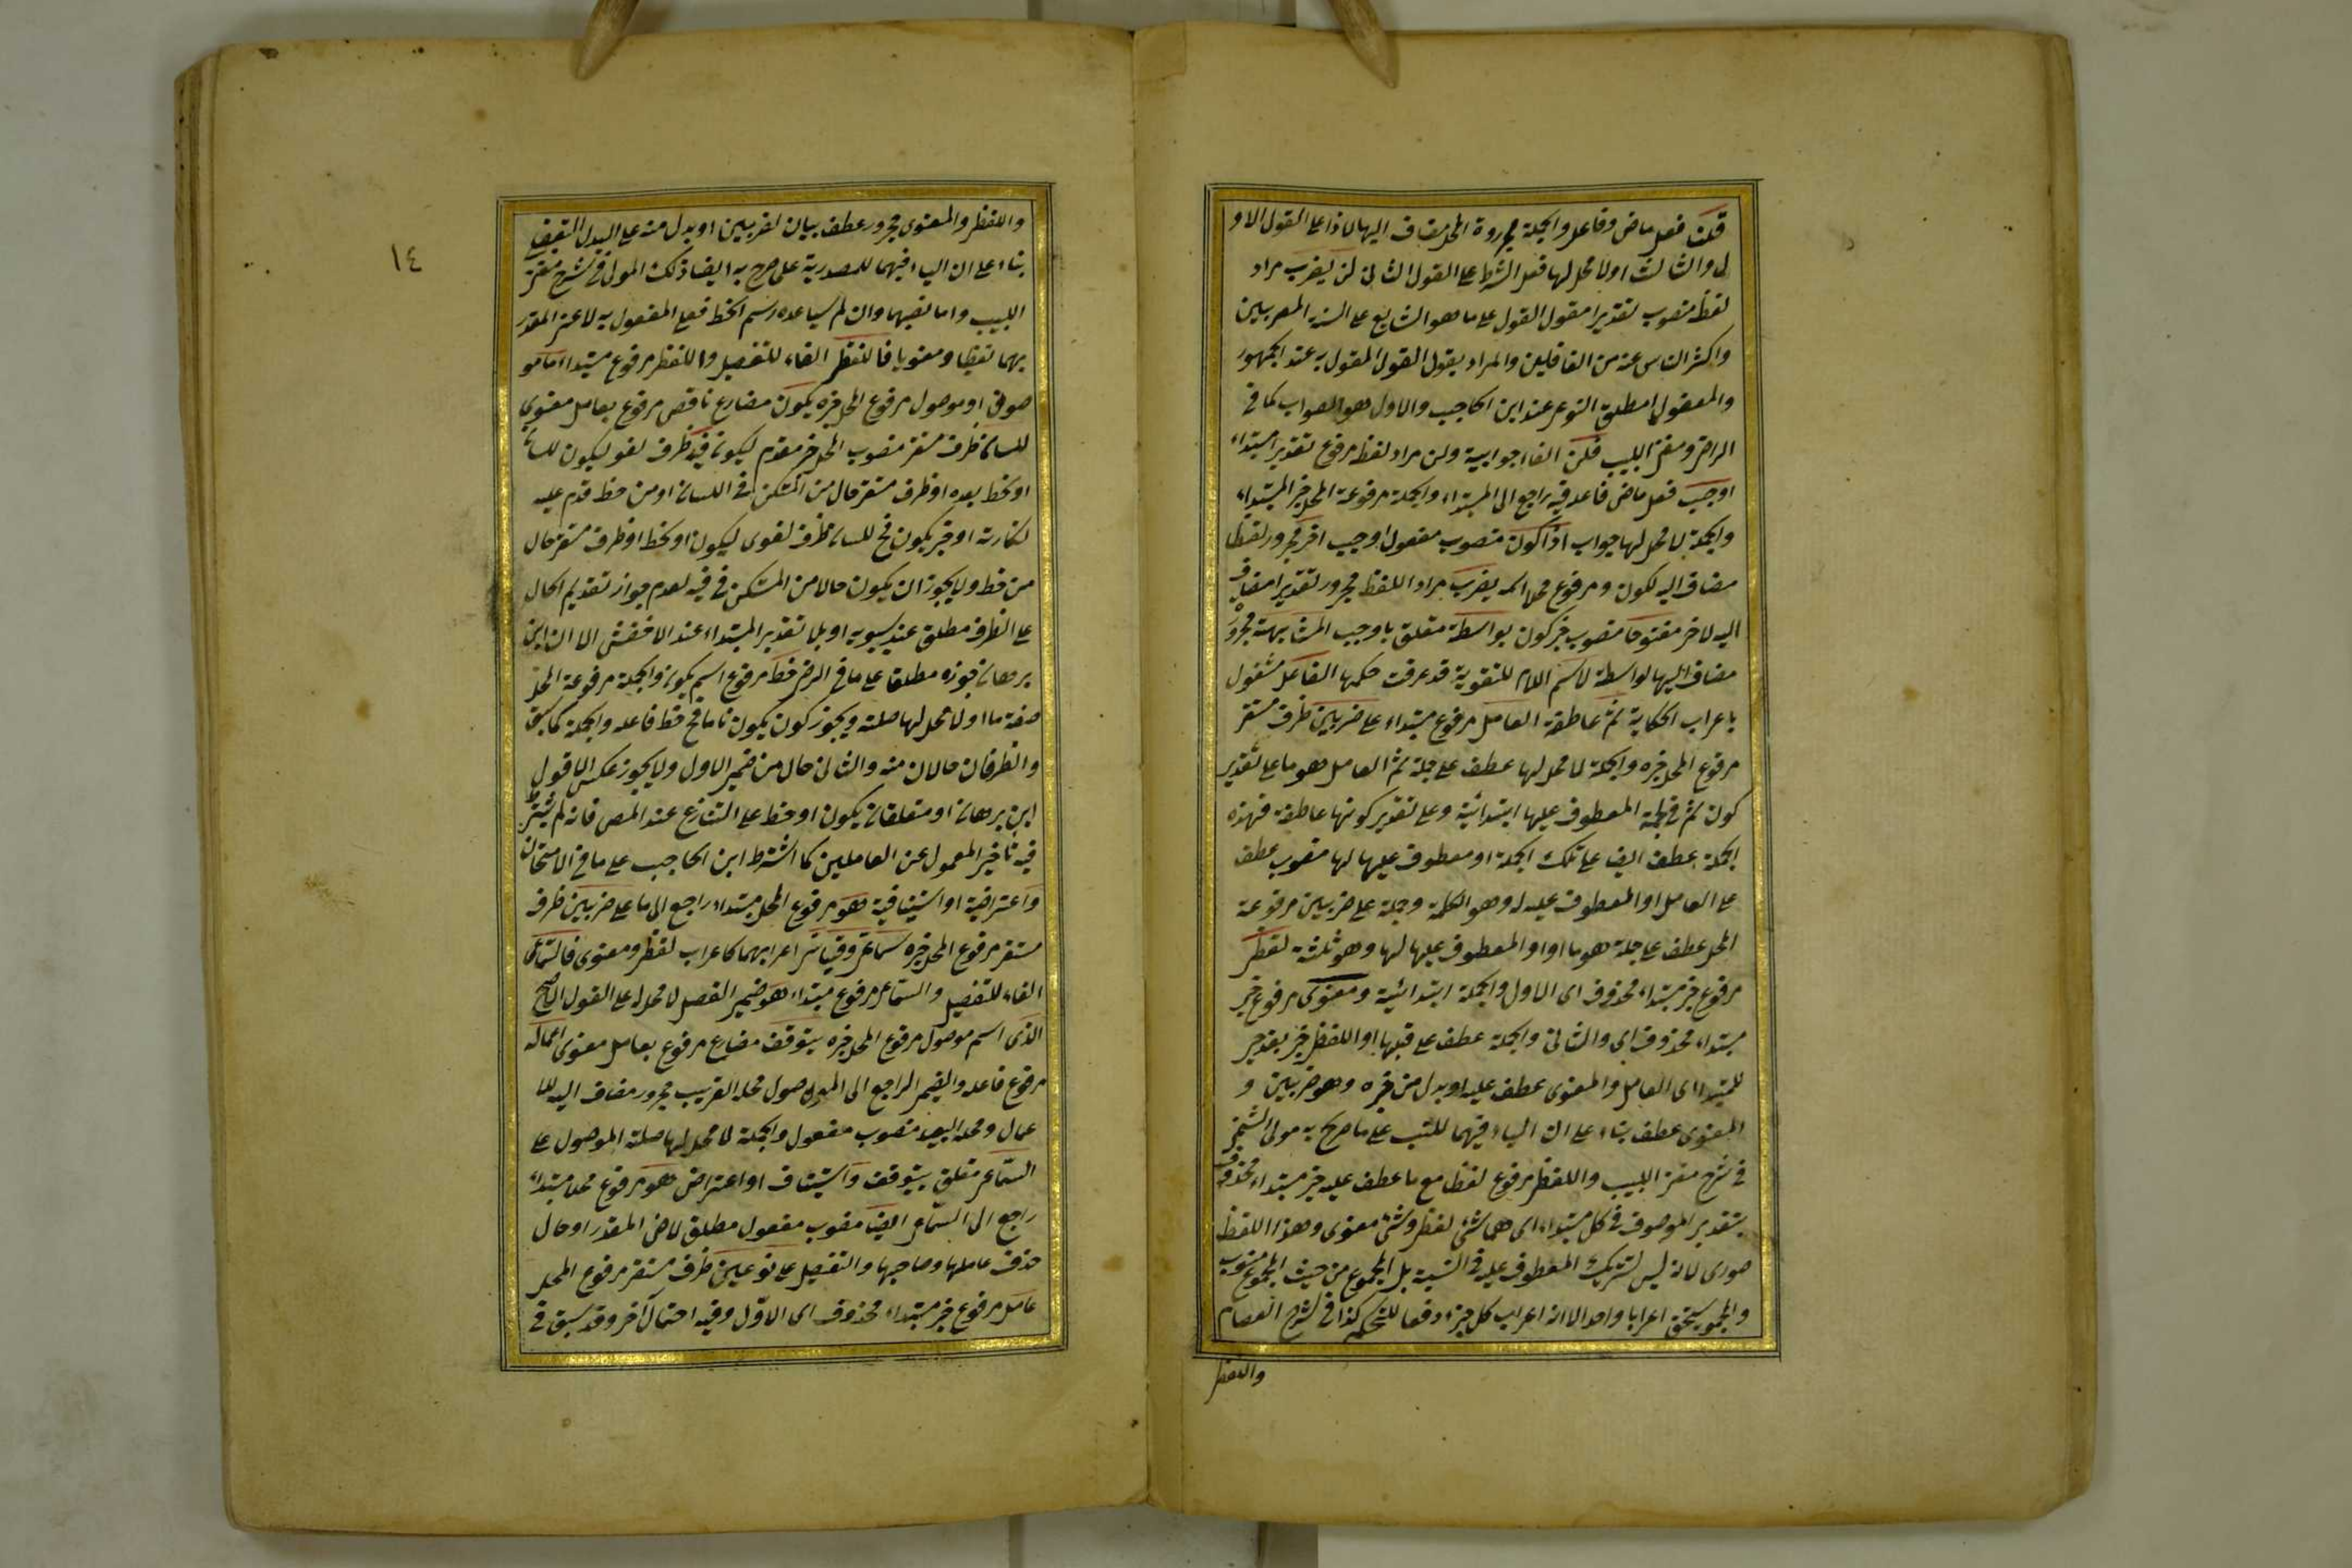 قلت فعل ماض وفاعل والجملة مجرورة المحل مضاف اليها لاذا على القول الاو
ل والثالث اولا محل لها فعل الشرط على القول الثانى لن يضرب مراد
لفظ منصوب تقديرا مقول القول على ما هو الشايع على السنة المعربين
واكثر الناس عنه من الغافلين والمراد بقول القول المقول به عند الجمهور
والمفعول المطلق النوعى عند ابن الحاجب والاول هو الصواب كما فى
الرضى ومغنى اللبيب فلن الفا جوابية ولن مراد لفظ مرفوع تقديرا مبتداء
اوجب فعل ماض فاعله فيه راجع الى المبتداء والجملة مرفوعة المحل خبر المبتداء
والجملة لا محل لها جواب اذا كون منصوب مفعول اوجب اخر مجرور لفظا
مضاف اليه لكون ومرفوع محلا اسمه يضرب مراد اللفظ مجرور تقديرا مضاف
اليه لاخر مفتوحا منصوب خبر كون بواسطة متعلق باوجب المشابهة مجرور
مضاف اليها لواسطة لاسم اللام للتقوية قد عرفت حكمها الفاعل مشغول
باعراب الحكاية ثم عاطفة العامل مرفوع مبتداء على ضربين ظرف مستقر
مرفوع المحل خبره والجملة لا محل لها عطف على جملة ثم العامل هو ما على تقدير
كون ثم فى المعطوف عليها ابتدائية وعلى تقدير كونها عاطفة فهذه
الجملة عطف ايضا على تلك الجملة او معطوف عليها لها منصوب عطف
على العامل او المعطوف عليه له وهو الكلمة وجملة على ضربين مرفوعة
المحل عطف على جملة هو ما او او المعطوف عليها لها وهو ثلثة لفظى
مرفوع خبر مبتداء محذوف اى الاول والجملة ابتدائية ومعنوى مرفوع خبر
مبتداء محذوف اى والثانى والجملة عطف على قبلها او اللفظى خبر بعد خبر
للمبتدا اى العامل والمعنوى عطف عليه او بدل من خبره وهو ضربين و
المعنوى عطف بناء على ان الياء فيهما للنسب على ما صرح به مولى
فى شرح مغنى اللبيب واللفظى مرفوع لفظا مع ما عطف عليه خبر مبتداء محذوف
بتقدير الموصوف فى كل مبتداء اى هى شئ لفظى وشئ معنوى وهذا اللفظ
صورى لانه ليس لتشريك المعطوف عليه فى النسبة بل المجموع من حيث المجموع منسوب
والمجموع يستحق اعرابا واحدا الا انه اعراب كل جزء دفعا للتحكم كذا فى شرح العصام
واللفظى
١٤
واللفظى والمعنوى مجرور عطف بيان لضربين او بدل منه على البدل
بناء على ان الياء فيهما للمصدرية على صرح به ايضا ذلك المولى فى شرح مغنى
اللبيب واما نصبهما وان لم يساعده رسم الخط فعلى المفعول به لاعنى المقدر
بهما لفظيا ومعنويا فاللفظى الفاء للتفصيل واللفظى مرفوع مبتداء ما مو
صوف او موصول مرفوع المحل خبره يكون مضارع ناقص مرفوع بعامل معنوى
للسان ظرف مستقر منصوب المحل خبر مقدم ليكون فيه ظرف لغو ليكون للسان
او لحظ بعده او ظرف مستقر حال من المستكن فى اللسان او من حظ قدم عليه
لنكارته او خبر يكون فح للسان ظرف لغوى ليكون او لحظ او ظرف مستقر حال
من حظ ولا يجوز ان يكون حالا من المستكن فى فيه لعدم جواز تقديم الحال
على الظرف مطلق عند سيبويه او بلا تقدير المبتداء عند الاخفش الا ان ابن
برهان جوزه مطلقا على ما فى الرضى حظ مرفوع اسم يكون والجملة مرفوعة المحل
صفة ما اولا محل لها صلة ويجوز كون يكون تاما فح حظ فاعله والجملة كما سبق
والظرفان حالان منه والثانى حال من ضمير الاول ولا يجوز عكس الا قول
ابن برهان او متعلقان بكون او حظ على التنازع عند المص فانه لم يشترط
فيه تاخير المعمول عن العاملين كما اشترط ابن الحاجب على ما فى الامتحان
واعتراضية او استينافية هو مرفوع المحل مبتداء راجع الى ما على ضربين ظرف
مستقر مرفوع المحل خبره سماعى وقياسى اعرابهما كاعراب لفظى ومعنوى فالسماعى
الفاء للتفصيل والسماعى مرفوع مبتداء هو ضمير الفصل لا محل له على القول الاصح
الذى اسم موصول مرفوع المحل خبره يتوقف مضارع مرفوع بعامل معنوى اعماله
مرفوع فاعله والضمير الراجع الى الموصول محله القريب مجرور مضاف اليه للا
عمال ومحله البعيد منصوب مفعول والجملة لا محل لها صلة الموصول على
السماعى متعلق بيتوقف واستيناف او اعتراض هو مرفوع محلا مبتداء
راجع الى السماعى ايضا منصوب مفعول مطلق لاض المقدر او حال
حذف عاملها وصاحبها والتفصيل على نوعين ظرف مستقر مرفوع المحل
عامل مرفوع خبر مبتداء محذوف اى الاول وفيه احتمال اخر وقد سبق فى